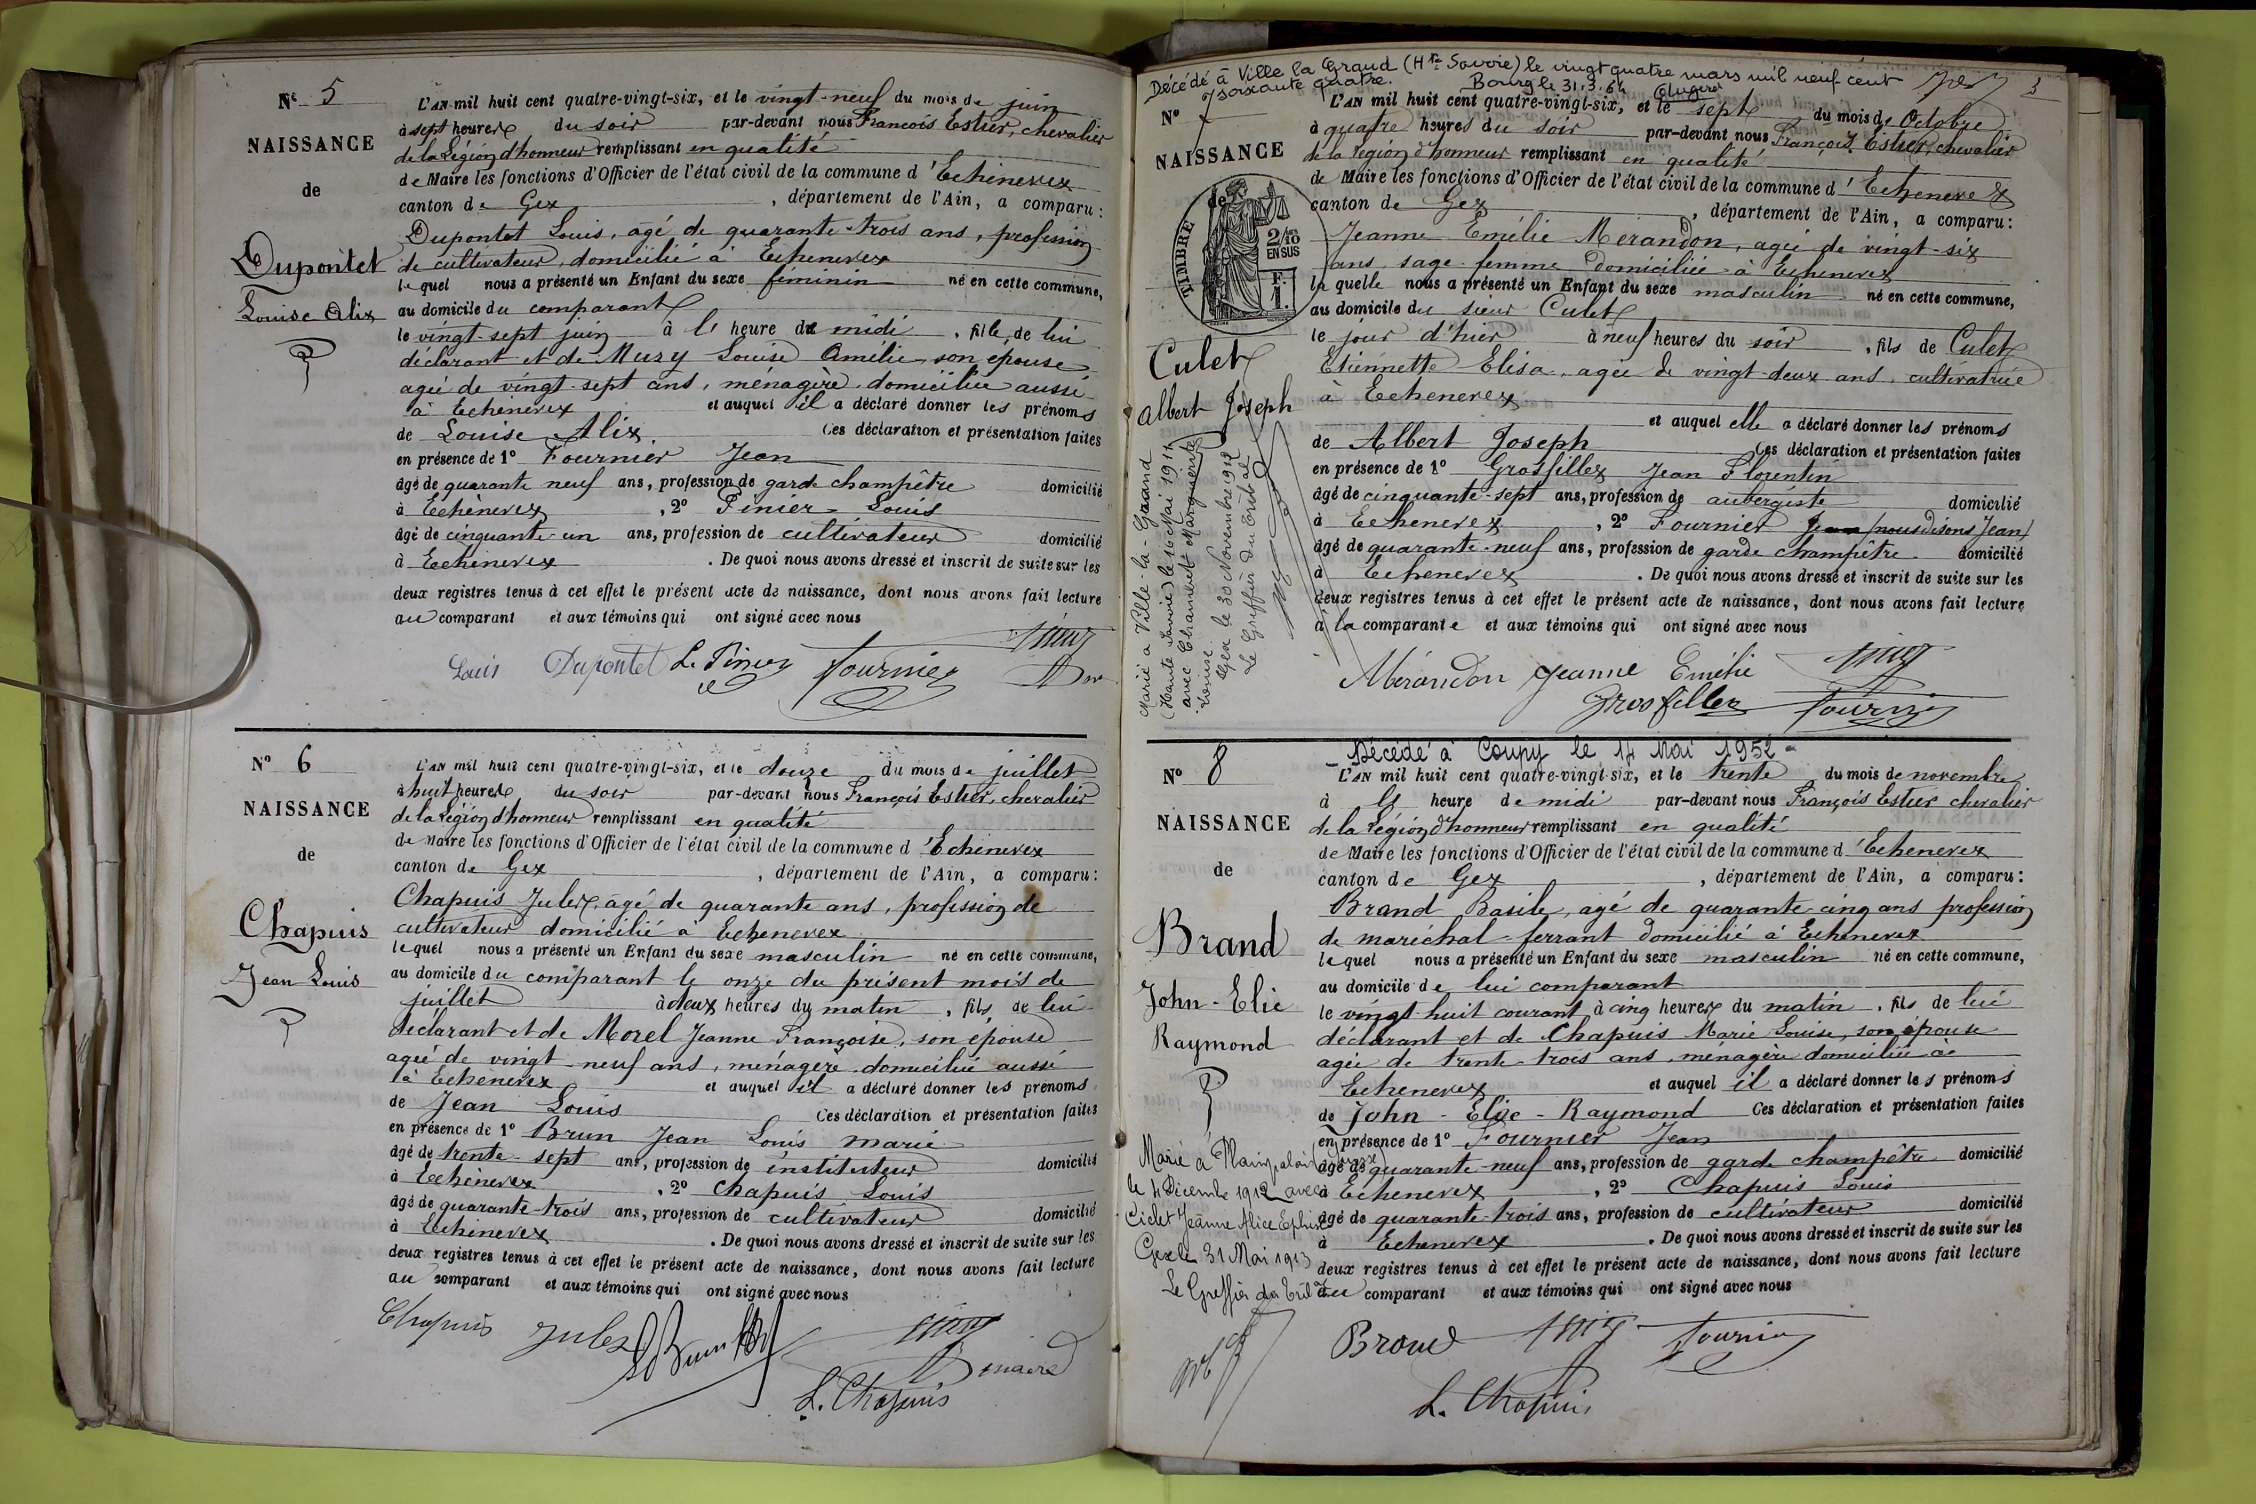 Nº 5
NAISSANCE
de
Dupontet
Louise Alix
L'AN mil huit cent quatre-vingt-six, et le vingt-neuf du mois de juin
à sept heures du soir par-devant nous François Estier, chevalier
de la Légion d'honneur remplissant en qualité
de Maire les fonctions d'Officier de l'état civil de la commune d'Echenevex
canton de Gex, département de l'Ain, a comparu :
Dupontet Louis, agé de quarante-trois ans, profession
de cultivateur, domicilié à Echenevex
lequel nous a présenté un Enfant du sexe féminin né en cette commune,
au domicile du comparant
le vingt-sept juin à l' heure de midi, fille de lui
déclarant et de Muzy Louise Amélie son épouse
agée de vingt-sept ans, ménagère domiciliée aussi
à Echenevex et auquel il a déclaré donner les prénoms
de Louise Alix. Ces déclaration et présentation faites
en présence de 1º Fournier Jean
âgé de quarante neuf ans, profession de garde champêtre domicilié
à Echenevex, 2º Pinier Louis
âgé de cinquante-un ans, profession de cultivateur domicilié
à Echenevex. De quoi nous avons dressé et inscrit de suite sur les
deux registres tenus à cet effet le présent acte de naissance, dont nous avons fait lecture
au comparant et aux témoins qui ont signé avec nous
Louis Dupontet L. Pinier Fournier
Nº 6
NAISSANCE
de
Chapuis
Jean Louis
L'AN mil huit cent quatre-vingt-six, et le douze du mois de juillet
à huit heures du soir par-devant nous François Estier, chevalier
de la Légion d'honneur remplissant en qualité
de Maire les fonctions d'Officier de l'état civil de la commune d'Echenevex
canton de Gex, département de l'Ain, a comparu :
Chapuis Jules, agé de quarante ans, profession de
cultivateur domicilié à Echenevex
lequel nous a présenté un Enfant du sexe masculin né en cette commune,
au domicile du comparant le onze du présent mois de
juillet à deux heures du matin, fils de lui
déclarant et de Morel Jeanne Françoise, son épouse
agée de vingt-neuf ans, ménagère domiciliée aussi
à Echenevex et auquel il a déclaré donner les prénoms
de Jean Louis Ces déclaration et présentation faites
en présence de 1º Brun Jean Louis Marie
âgé de trente-sept ans, profession de instituteur domicilié
à Echenevex, 2º Chapuis Louis
âgé de quarante-trois ans, profession de cultivateur domicilié
à Echenevex. De quoi nous avons dressé et inscrit de suite sur les
deux registres tenus à cet effet le présent acte de naissance, dont nous avons fait lecture
au comparant et aux témoins qui ont signé avec nous
Chapuis Jules Brun
maire
L. Chapuis
Décédé à Ville la Grand (Hte Savoie) le vingt quatre mars mil neuf cent
soixante quatre. Bourg le 31.3.64
3
Nº 7
NAISSANCE
de
TIMBRE
2/10
EN SUS
F.
1.
Culet
Albert Joseph
Marié à Ville-la-Grand
(Haute Savoie) le 16 Mai 1911
avec Channet Marguerite
Louise.
Gex le 30 Novembre 1912
Le Greffier du Tribunal
L'AN mil huit cent quatre-vingt-six, et le sept du mois de Octobre
à quatre heures du soir par-devant nous François Estier, chevalier
de la Légion d'honneur remplissant en qualité
de Maire les fonctions d'Officier de l'état civil de la commune d'Echenevex
canton de Gex, département de l'Ain, a comparu :
Jeanne Emélie Merandon, agée de vingt-six
ans sage-femme domiciliée à Echenevex
laquelle nous a présenté un Enfant du sexe masculin né en cette commune,
au domicile du sieur Culet
le jour d'hier à neuf heures du soir, fils de Culet
Etiennette Elisa, agée de vingt-deux ans, cultivatrice
à Echenevex
et auquel elle a déclaré donner les prénoms
de Albert Joseph Ces déclaration et présentation faites
en présence de 1º Grosfillex Jean Florentin
âgé de cinquante-sept ans, profession de aubergiste domicilié
à Echenevex, 2º Fournier Jean (nous disons Jean)
âgé de quarante-neuf ans, profession de garde champêtre domicilié
à Echenevex. De quoi nous avons dressé et inscrit de suite sur les
deux registres tenus à cet effet le présent acte de naissance, dont nous avons fait lecture
à la comparante et aux témoins qui ont signé avec nous
Mérandon Jeanne Emélie
Grosfillex Fournier
Décédé à Coupy le 14 Mai 1952
Nº 8
NAISSANCE
de
Brand
John-Elie
Raymond
L'AN mil huit cent quatre-vingt-six, et le trente du mois de novembre
à l' heure de midi par-devant nous François Estier chevalier
de la Légion d'honneur remplissant en qualité
de Maire les fonctions d'Officier de l'état civil de la commune d'Echenevex
canton de Gex, département de l'Ain, a comparu :
Brand Basile, agé de quarante-cinq ans profession
de maréchal-ferrant domicilié à Echenevex
lequel nous a présenté un Enfant du sexe masculin né en cette commune,
au domicile de lui comparant
le vingt-huit courant à cinq heures du matin, fils de lui
déclarant et de Chapuis Marie Louise, son épouse
agée de trente-trois ans, ménagère domiciliée à
Echenevex et auquel il a déclaré donner les prénoms
de John-Elie-Raymond Ces déclaration et présentation faites
en présence de 1º Fournier Jean
âgé de quarante-neuf ans, profession de garde champêtre domicilié
à Echenevex, 2º Chapuis Louis
âgé de quarante-trois ans, profession de cultivateur domicilié
à Echenevex. De quoi nous avons dressé et inscrit de suite sur les
deux registres tenus à cet effet le présent acte de naissance, dont nous avons fait lecture
au comparant et aux témoins qui ont signé avec nous
Marié à Plainpalais (Suisse)
le 4 Décembre 1912 avec
Ciclet Jeanne Alice
Gex le 31 Mai 1913
Le Greffier du Trib
Brand Fournier
L. Chapuis